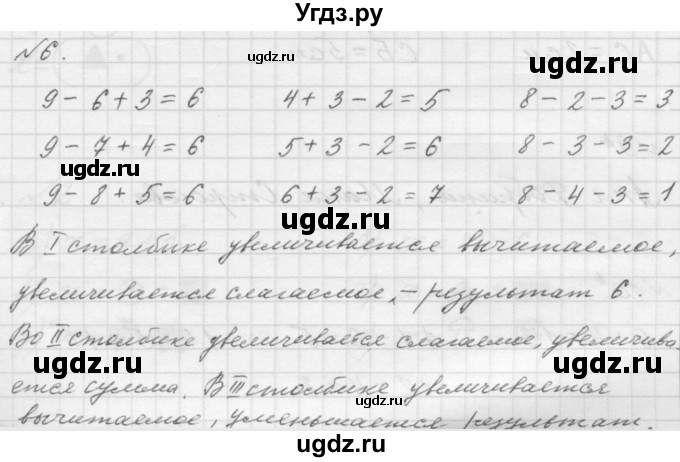 Угдз.ру
№6.
9 - 6 + 3 = 6 4 + 3 - 2 = 5 8 - 2 - 3 = 3
9 - 7 + 4 = 6 5 + 3 - 2 = 6 8 - 3 - 3 = 2
9 - 8 + 5 = 6 6 + 3 - 2 = 7 8 - 4 - 3 = 1
В I столбике увеличивается вычитаемое,
увеличивается слагаемое, – результат 6.
Во II столбике увеличивается слагаемое, увеличива-
ется сумма. В III столбике увеличивается
вычитаемое, уменьшается результат.
ugdz.ru
ugdz.ru
ugdz.ru
ugdz.ru
ugdz.ru
ugdz.ru
ugdz.ru
ugdz.ru
ugdz.ru
ugdz.ru
ugdz.ru